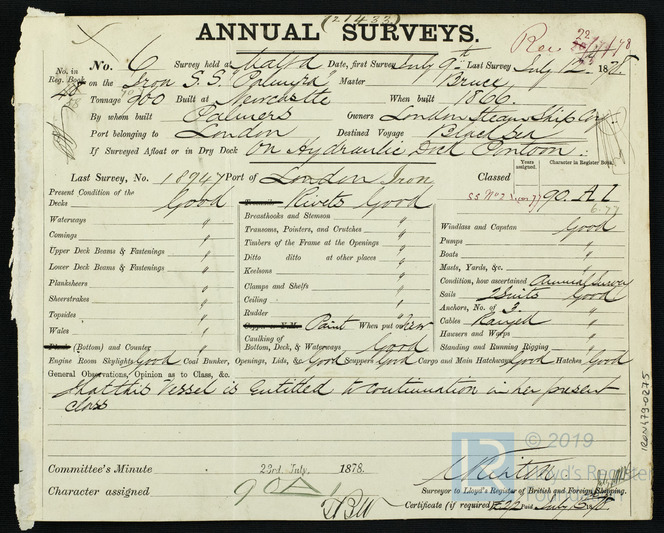 (21433)
ANNUAL SURVEYS.
No. 6 Survey held at Malta Date, first Survey July 9th Last Survey July 12 1878
No. in Reg. Book
on the Iron S.S. "Palmyra" Master Bruce
Tonnage 900 Built at Newcastle When built 1866.
By whom built Palmers Owners London Steam Ship Coy
Port belonging to London Destined Voyage Black Sea
If Surveyed Afloat or in Dry Dock On Hydraulic Dock Pontoon.
Years assigned. Character in Register Book.
Last Survey, No. 18947 Port of London Iron Classed SS No 2 90. A1
6.77
Present Condition of the
Decks Good Rivets Good
Waterways " Breasthooks and Stemson " Windlass and Capstan Good
Comings " Transoms, Pointers, and Crutches " Pumps "
Upper Deck Beams & Fastenings " Timbers of the Frame at the Openings " Boats "
Lower Deck Beams & Fastenings " Ditto ditto at other places " Masts, Yards, &c. "
Planksheers " Keelsons " Condition, how ascertained Annual Survey
Sheerstrakes " Clamps and Shelfs " Sails 2 Suits Good
Topsides " Ceiling " Anchors, No. of 3.
Wales " Rudder " Cables Ranged "
Copper or Y.M. Paint When put on New Hawsers and Warps "
Plank (Bottom) and Counter Caulking of Bottom, Deck, & Waterways Good Standing and Running Rigging "
Engine Room Skylights Good Coal Bunker, Openings, Lids, & Good Scuppers Good Cargo and Main Hatchways Good Hatches Good
General Observations, Opinion as to Class, &c.
That this Vessel is entitled to continuation in her present
class
Committee's Minute 23rd July, 1878.
Character assigned 90A
Surveyor to Lloyd's Register of British and Foreign Shipping.
Certificate (if required)
IRON479-0275
LR
© 2019
Lloyd's Register
Foundation